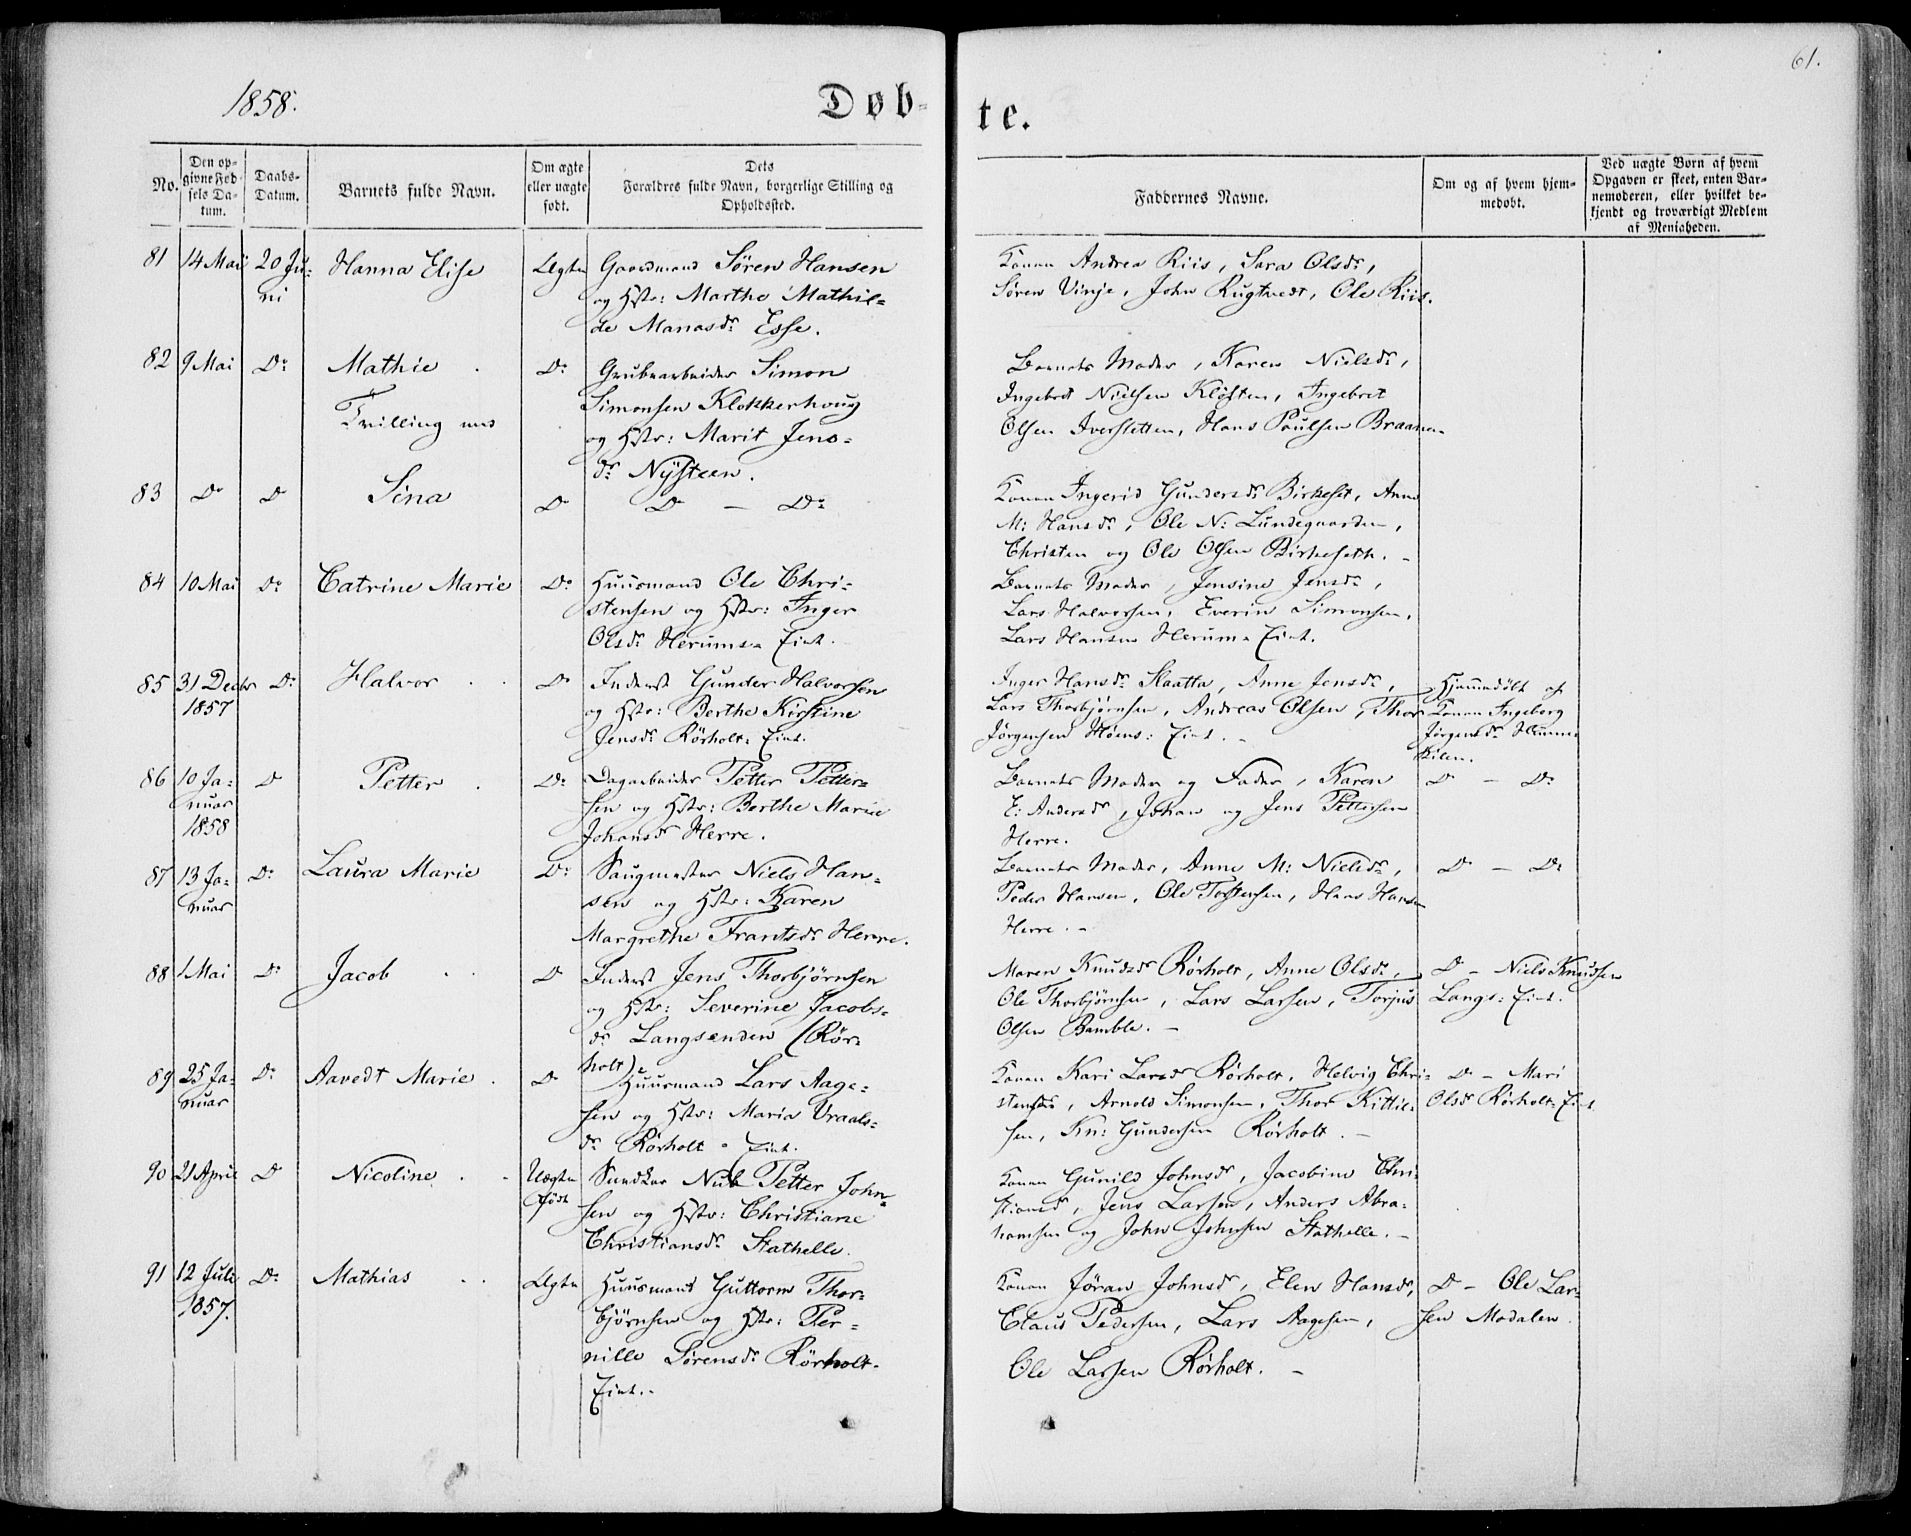 61.
1858.
Døb-
te.
No.
Den op-
givne Fød-
sels Da-
tum.
Daabs-
Datum.
Barnets fulde Navn.
Om ægte
eller uægte
født.
Dets
Forældres fulde Navn, borgerlige Stilling og
Opholdssted.
Faddernes Navne.
Om og af hvem hjem-
medøbt.
Ved uægte Børn af hvem
Opgaven er skeet, enten Bar-
nemoderen, eller hvilket be-
kjendt og troværdigt Medlem
af Menigheden.
81 14 Mai 20 Ju-
ni
Hanna Elise
Ægte
Gaardmand Søren Hansen
og Hstr: Marthe Mathil-
de Manasdr Esse.
Konen Andrea Riis, Sara Olsdr,
Søren Vinje, John Rugtvedt, Ole Riis.
82 9 Mai Do
Mathie
Tvilling med
Do
Grubearbeider Simon
Simonsen Klokkerhoug
og Hstr: Marit Jens-
dr Nysteen.
Barnets Moder, Karen Nielsdr,
Ingebret Nielsen Kløften, Ingebret
Olsen Iversletten, Hans Poulsen Braanen
83 Do Do
Sina
Do
Do - Do
Konen Ingerid Gundersdr Birkeset, Anne
M: Hansdr, Ole N: Lundegaarden,
Christen og Ole Olsen Birkeseth. -
84 10 Mai Do
Catrine Marie
Do
Huusmand Ole Chri-
stensen og Hstr: Inger
Olsdr Herums Eiet.
Barnets Moder, Jensine Jensdr,
Lars Halvorsen, Everin Simonsen,
Lars Hansen Herums Eiet.
85 31 Decbr
1857
Do
Halvor
Do
Inderst Gunder Halvorsen
og Hstr: Berthe Kirstine
Jensdr Rørholt: Eiet.
Inger Hansdr Slaatta, Anne Jensdr,
Lars Thorbjørnsen, Andreas Olsen, Thor
Jørgensen Høens: Eiet. -
Hjemmedøbt af
Konen Ingeborg
Jørgensdr
kilen.
86 10 Ja-
nuar
1858
Do
Petter
Do
Dagarbeider Petter Petter-
sen og Hstr: Berthe Marie
Johansdr Herre.
Barnets Moder og Fader, Karen
E: Andersdr, Johan og Jens Pettersen
Herre.
Do - Do
87 13 Ja-
nuar
Do
Laura Marie
Do
Saugmester Niels Han-
sen og Hstr: Karen
Margrethe Frantsdr Herre.
Barnets Moder, Anne M: Nielsdr,
Peder Hansen, Ole Tostensen, Hans Hansen
Herre. -
Do - Do
88 1 Mai Do
Jacob
Do
Inderst Jens Thorbjørnsen
og Hstr: Severine Jacobs-
dr Langsenden (Rør-
holt)
Maren Knudsdr Rørholt, Anne Olsdr,
Ole Thorbjørnsen, Lars Larsen, Torjus
Olsen Bamble. -
Do - Niels Knudsen
Langs: Eiet.
89 25 Ja-
nuar
Do
Aavedt Marie
Do
Huusmand Lars Aage-
sen og Hstr: Maria Vraals-
dr Rørholt - Eiet.
Konen Kari Larsdr Rørholt, Helvig Chri-
stensdr, Arnold Simonsen, Thor Kittil-
sen, Kn: Gundersen Rørholt. -
Do - Mari
Olsdr Rørholt: Eiet.
90 21 April Do
Nicoline
Uægte
født
Petter John-
sen og Hstr: Christiane
Christiansdr Stathelle.
Konen Gunild Johnsdr, Jacobine Chri-
stiansdr, Jens Larsen, Anders Abra-
hamsen og John Johnsen Stathelle. -
91 12 Juli
1857.
Do
Mathias
Ægte
Huusmand Guttorm Thor-
bjørnsen og Hstr: Per-
nille Sørensdr Rørholt-
Eiet.-
Konen Jøran Johnsdr, Elen Hansdr,
Claus Pedersen, Lars Aagesen,
Ole Larsen Rørholt. -
Do - Ole Lar-
sen Modalen.